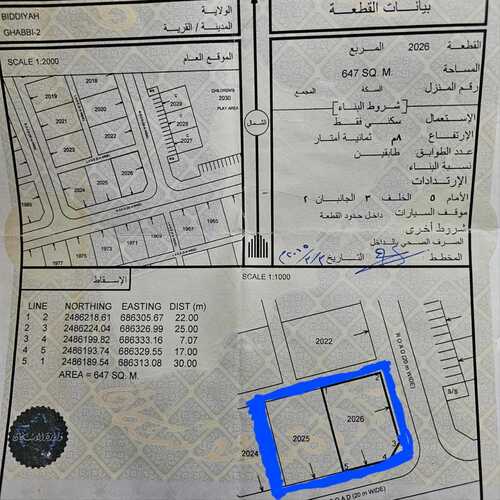 BIDDIYAH
الولاية
GHABBI-2
المدينة / القرية
SCALE 1:2000
الموقع العام
2018
2019
2020
2021
2022
2023
2024
2025
2026
2027
2028
2029
CHILDREN'S
2030
PLAY AREA
1965
1967
1969
1971
1973
1975
1977
الشمال
بيانات القطعة
القطعة 2026 المربع
المساحة 647 SQ. M.
رقم المنزل السكة المجمع
[ شروط البناء ]
الإستعمال سكني فقط
الإرتفاع ٨م ثمانية أمتار
عدد الطوابق طابقين
نسبة البناء
الإرتدادات
الأمام ٥ الخلف ٣ الجانبان ٢
موقف السيارات داخل حدود القطعة
شروط أخرى
الصرف الصحي بالداخل
المخطط التاريخ
الإسقاط
SCALE 1:1000
LINE NORTHING EASTING DIST (m)
1 2 2486218.61 686305.67 22.00
2 3 2486224.04 686326.99 25.00
3 4 2486199.82 686333.16 7.07
4 5 2486193.74 686329.55 17.00
5 1 2486189.54 686313.08 30.00
AREA = 647 SQ. M.
2022
ROAD (20 m WIDE)
s/s
2024
2025
2026
1
2
3
4
5
ROAD (20 m WIDE)